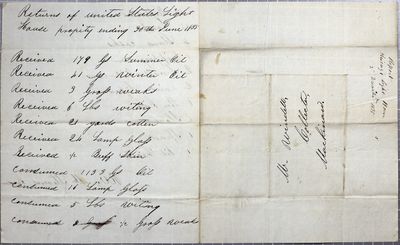 Return of united States Light
House property ending 30th June 18
Received 179 Gs Summer Oil
Received 41 Gs Winter Oil
Received 3 Gross weaks
Received 6 Lbs witing
Received 21 yards cotten
Received 24 Lamp Glass
Received Buff Skin
Consumed 113 Gs Oil
Consumed 16 Lamp Glass
Consumed 5 Lbs Witing
Consumed Gross Weaks
Mr.
Collector
Mackinac